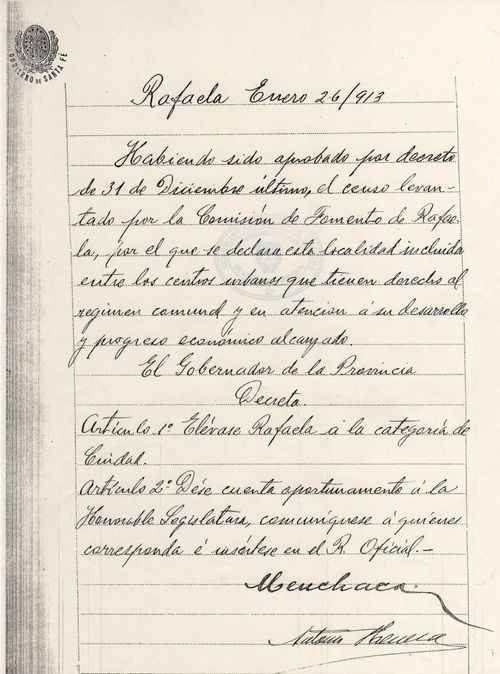 GOBIERNO DE SANTA FÉ
Rafaela Enero 26/913
Habiendo sido aprobado por decreto
de 31 de Diciembre último, el censo levan-
tado por la Comisión de Fomento de Rafae-
la, por el que se declara esta localidad incluida
entre los centros urbanos que tienen derecho al
regimen comunal y en atencion á su desarrollo
y progreso económico alcanzado.
El Gobernador de la Provincia
Decreta.
Artículo 1º Elévase Rafaela á la categoría de
Ciudad.
Artículo 2º Dése cuenta oportunamente á la
Honorable Legislatura, comuníquese á quiénes
corresponda é insértese en el R. Oficial.-
Menchaca
Antonio Herrera